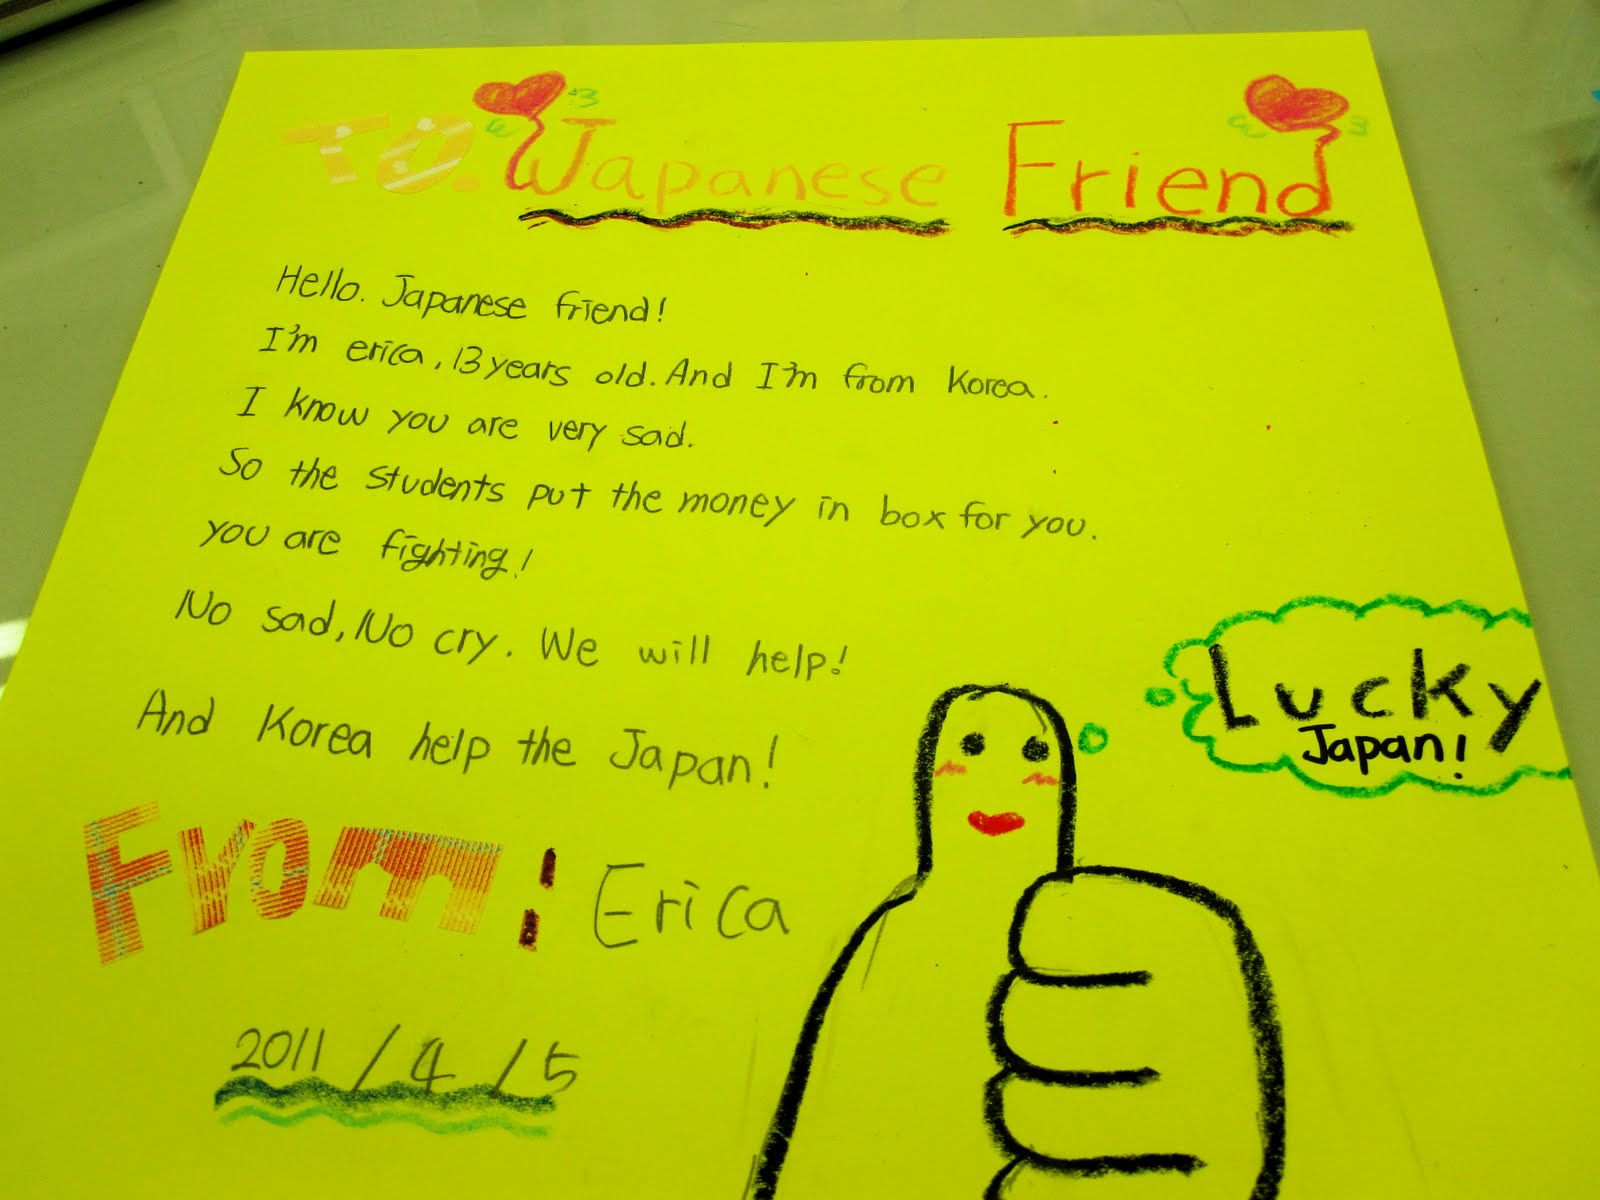 TO. Japanese Friend
Hello. Japanese friend!
I'm erica, 13 years old. And I'm from Korea.
I know you are very sad.
So the students put the money in box for you.
you are fighting!
No sad, No cry. We will help!
And Korea help the Japan!
From: Erica
2011/4/5
Lucky
Japan!